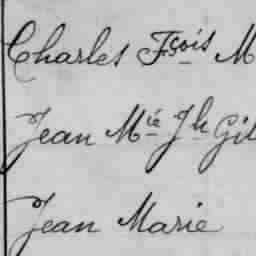 Charles Fçois M
Jean Mie Jh Gil
Jean Marie